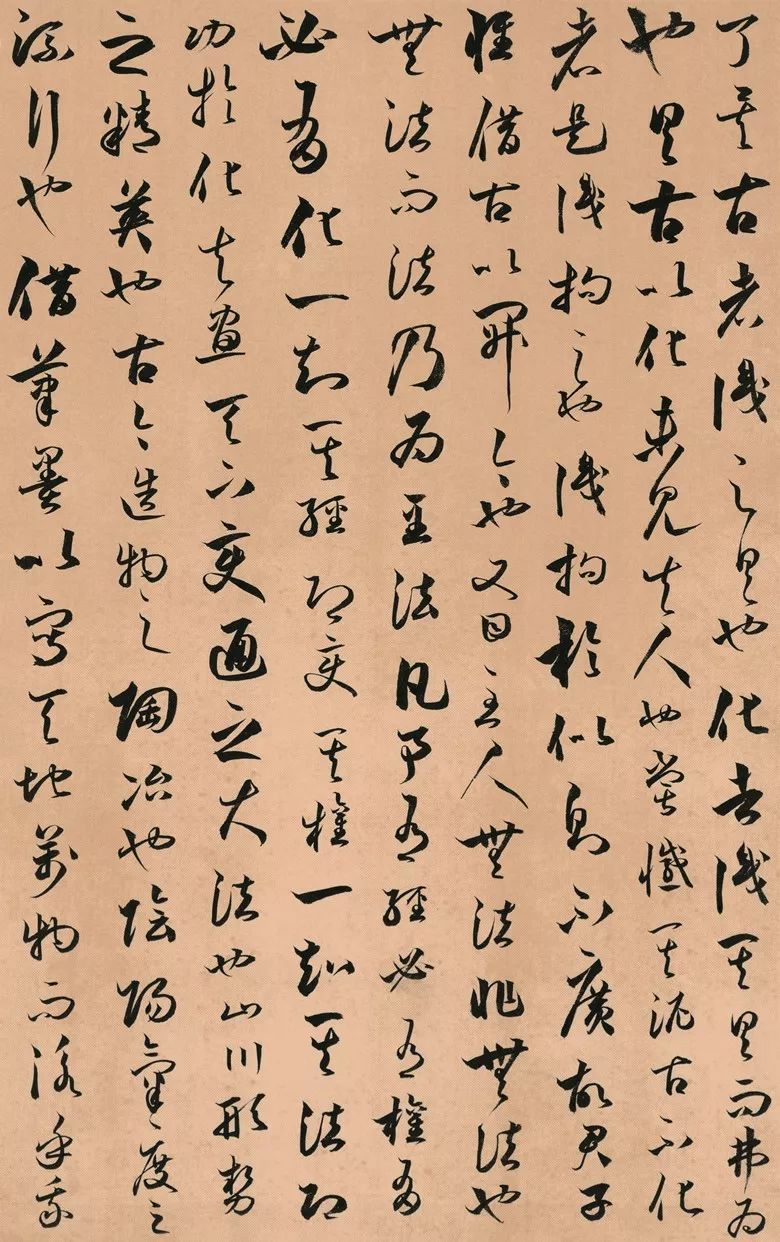 了古者識之具也化者識其具而弗為
也具古以化未見夫人也嘗憾其泥古不化
者是識拘之也識拘於似則不廣故君子
惟借古以開今也又曰至人無法非無法也
無法而法乃為至法凡事有經必有權有
必有化一知其經即變其權一知其法即
功於化夫畫天下變通之大法也山川形勢
之精英也古今造物之陶冶也陰陽氣度之
流行也借筆墨以寫天地萬物而泳乎我